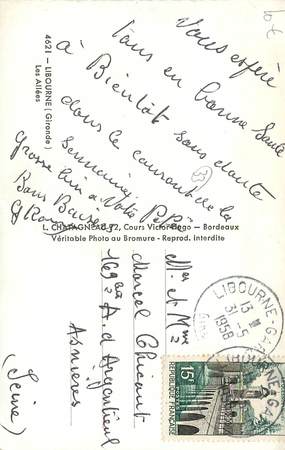 10€
4621 - LIBOURNE (Gironde)
Les Allées
Vous espère
tous en bonne Santé
à Bientôt sans doute
dans le courant de la
Semaine
Grosse à votre Pépé
Bons Baisers
L. CHATAGNEAU 72, Cours Victor-Hugo — Bordeaux
Véritable Photo au Bromure - Reprod. interdite
Mr et Mme
Marcel
169 A. d'Argenteuil
Asnières
(Seine)
LIBOURNE-GA
13
31-5
1958
15F
REPUBLIQUE FRANÇAISE